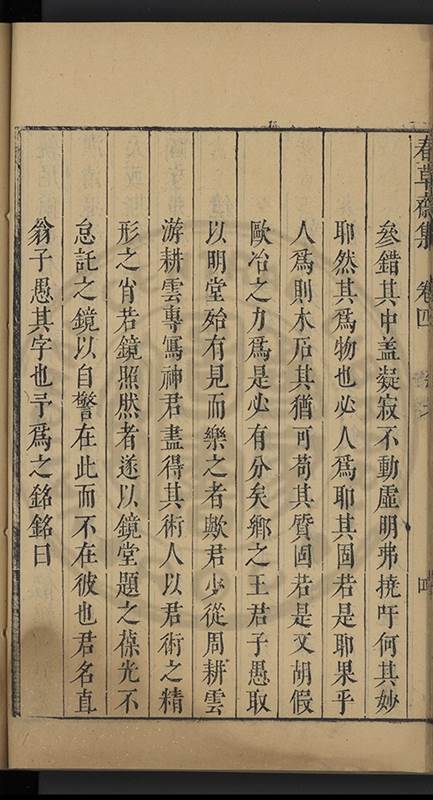 春草齋集 卷四
參錯其中盖凝寂不動虛明弗撓吁何其妙
耶然其爲物也必人爲耶其固若是耶果乎
人爲則水石其猶可苟其質固若是又胡假
歐冶之力爲是必有分矣鄉之王君子愚取
以明堂殆有見而樂之者歟君少從周耕雲
游耕雲專寫神君盡得其術人以君術之精
形之肖若鏡照然者遂以鏡堂題之葆光不
怠託之鏡以自警在此而不在彼也君名直
翁子愚其字也予爲之銘銘曰